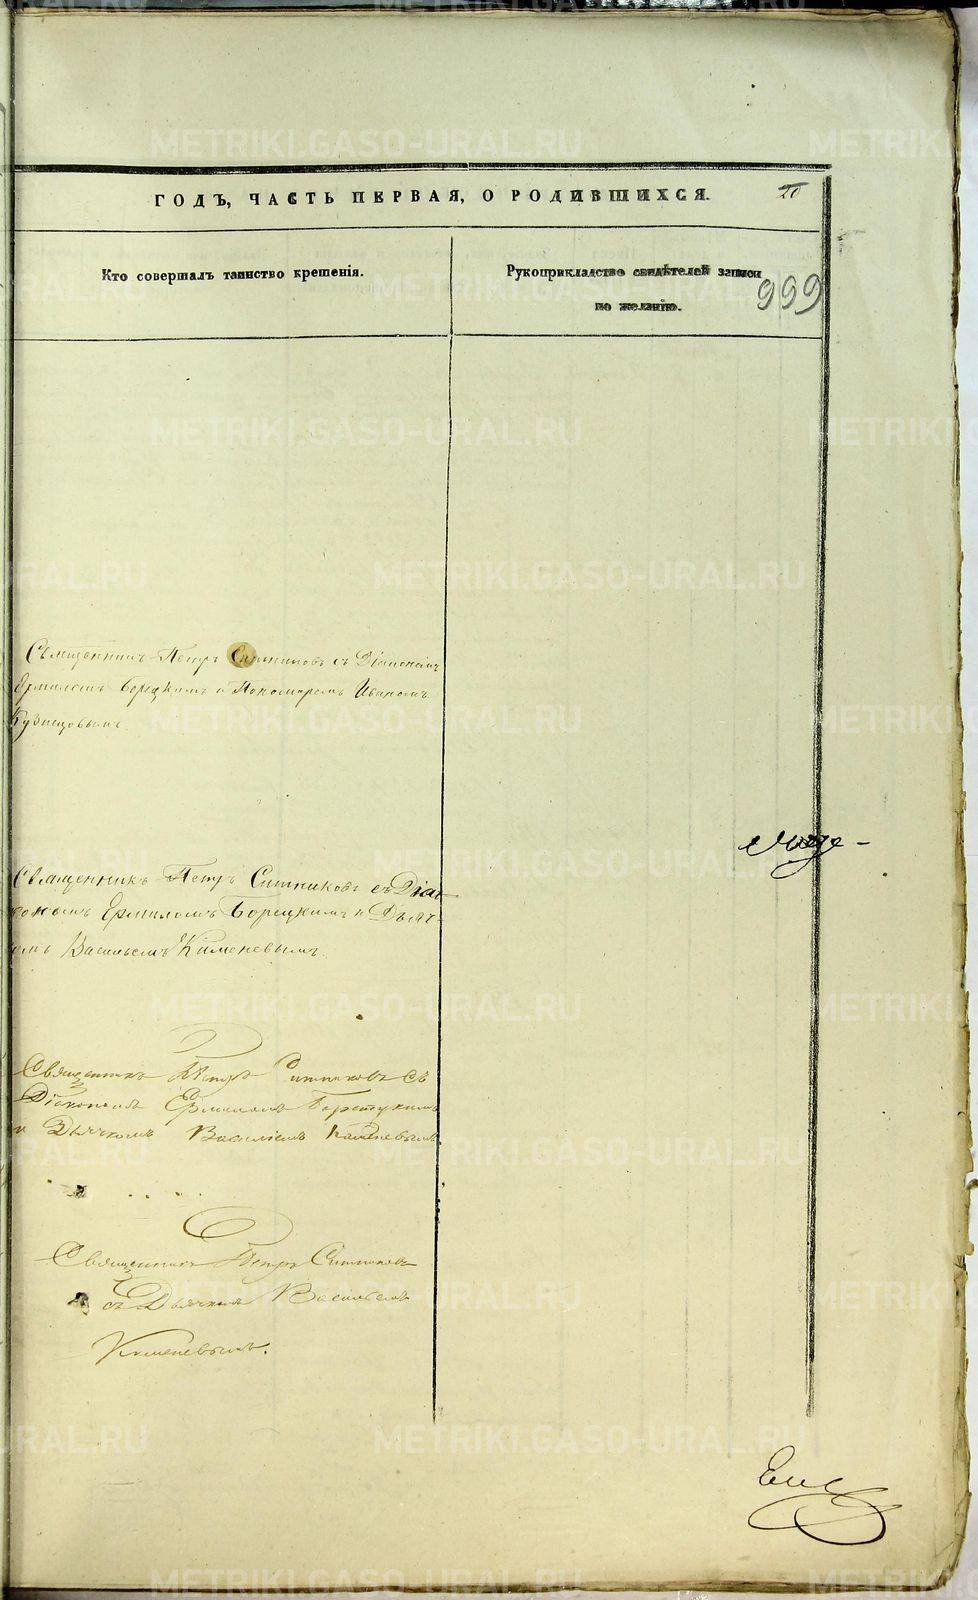 ГОДЪ, ЧАСТЬ ПЕРВАЯ, О РОДИВШИХСЯ.
20
Кто совершалъ таинство крещенія.
Рукоприкладство свидѣтелей записи
по желанію.
999
Священникъ Петръ Ситниковъ съ Діакономъ
Ермиломъ Борецкимъ и Пономаремъ Иваномъ
Кузнецовымъ
Священникъ Петръ Ситниковъ съ Діа
кономъ Ермиломъ Борецкимъ и Дьяч-
емъ Васильемъ Каменевымъ.
Священникъ Петръ Ситниковъ съ
Діакономъ Ермиломъ Борецкимъ
и Дьячкомъ Василіемъ Каменевымъ.
Священникъ Петръ Ситниковъ
съ Дьячкомъ Васильемъ
Каменевымъ.
METRIKI.GASO-URAL.RU